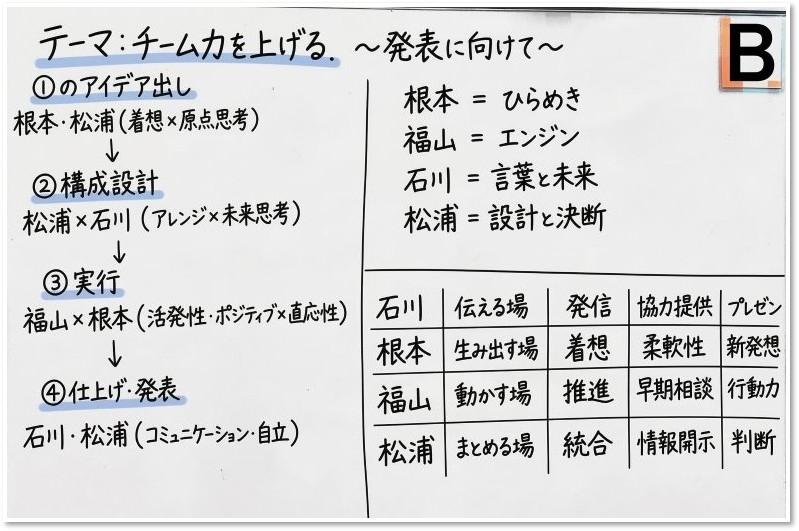 テーマ：チーム力を上げる. ～発表に向けて～
B
①のアイデア出し
根本・松浦(着想×原点思考)
↓
②構成設計
松浦×石川(アレンジ×未来思考)
↓
③実行
福山×根本(活発性・ポジティブ×直応性)
↓
④仕上げ・発表
石川・松浦(コミュニケーション・自立)
根本 = ひらめき
福山 = エンジン
石川 = 言葉と未来
松浦 = 設計と決断
石川 伝える場 発信 協力提供 プレゼン
根本 生み出す場 着想 柔軟性 新発想
福山 動かす場 推進 早期相談 行動力
松浦 まとめる場 統合 情報開示 判断